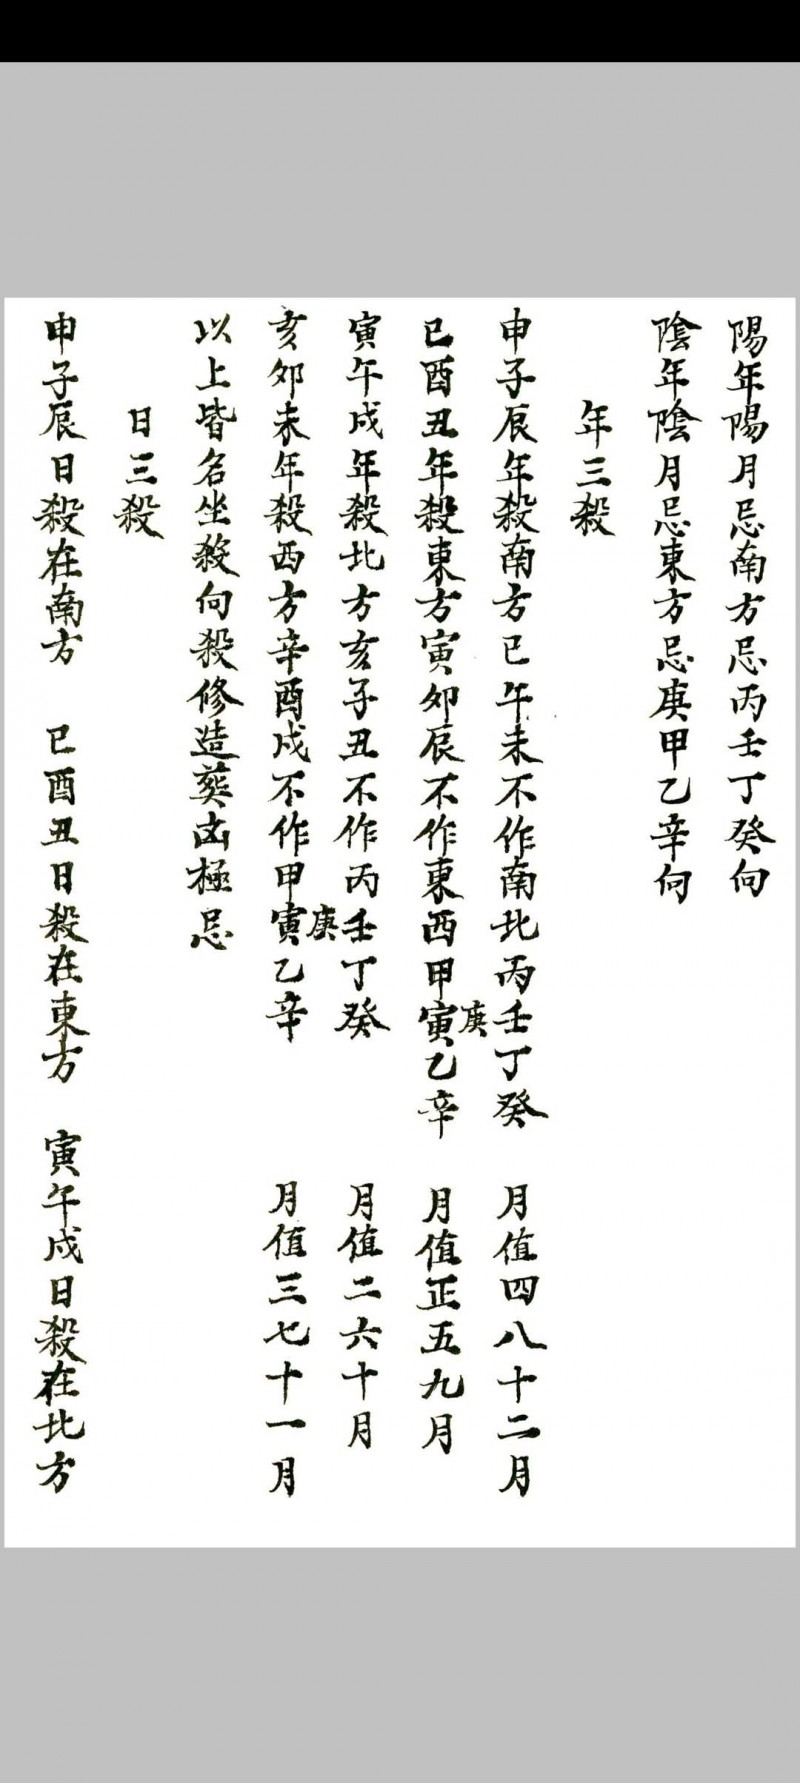 陽年陽月忌南方忌丙壬丁癸向
陰年陰月忌東方忌庚甲乙辛向
年三殺
申子辰年殺南方巳午未不作南北丙壬丁癸 月值四八十二月
巳酉丑年殺東方寅卯辰不作東西甲寅庚乙辛 月值正五九月
寅午戌年殺北方亥子丑不作丙壬丁癸 月值二六十月
亥卯未年殺西方辛酉戌不作甲寅庚乙辛 月值三七十一月
以上皆名坐殺向殺修造葬凶極忌
日三殺
申子辰日殺在南方 巳酉丑日殺在東方 寅午戌日殺在北方